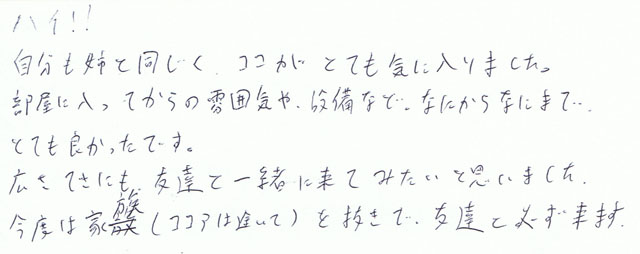 ハイ!!
自分も姉と同じく、ココがとても気に入りました。
部屋に入ってからの雰囲気や、設備など、なにからなにまで、
とても良かったです。
広さてきにも、友達と一緒に来てみたいと思いました。
今度は家族(ココアは 置いて)を抜きで、友達と必ず来ます。